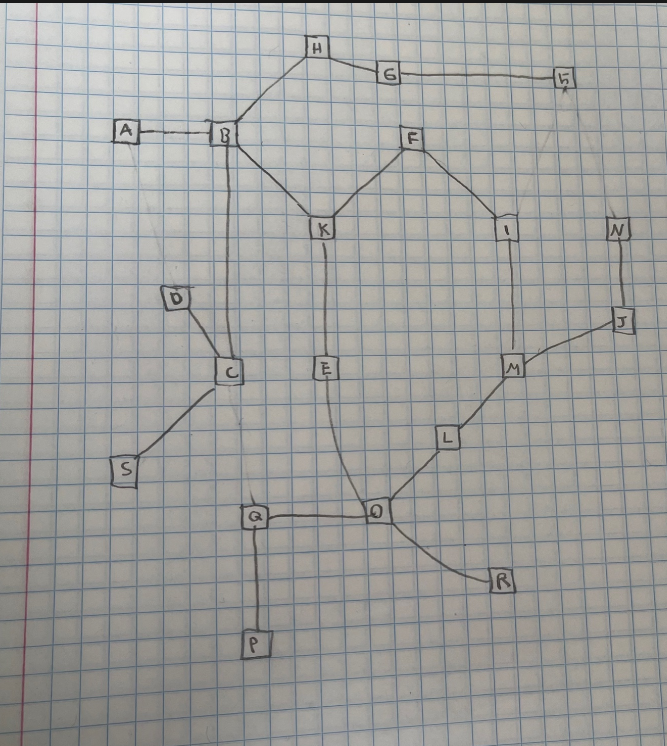 H
G
5
A
B
F
K
I
N
D
J
C
E
M
L
S
Q
O
R
P